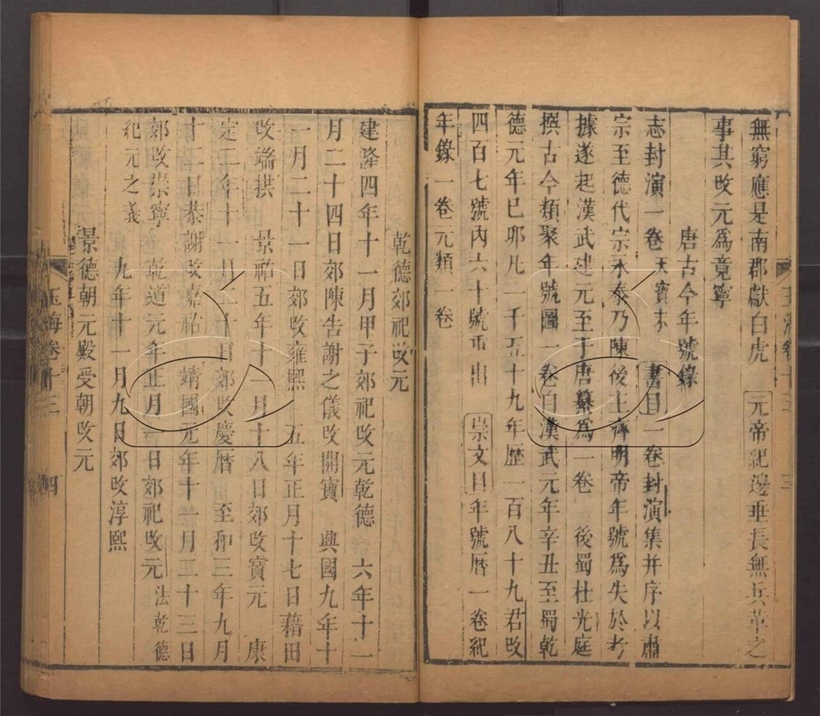 無窮應是南郡獻白虎　元帝紀邊垂長無兵革之
事其改元爲竟寧
唐古今年號錄
志封演一卷天寶末　書目一卷封演集并序以肅
宗至德代宗永泰乃陳後主齊明帝年號爲失於考
據遂起漢武建元至于唐纂爲一卷　後蜀杜光庭
撰古今類聚年號圖一卷自漢武元年辛丑至蜀乾
德元年巳卯凡一千五十九年歷一百八十九君改
四百七號內六十號重出　崇文目年號曆一卷紀
年錄一卷元類一卷
玉海卷十三　三
乾德郊祀改元
建隆四年十一月甲子郊祀改元乾德　六年十一
月二十四日郊陳告謝之儀改開寶　興國九年十
一月二十一日郊改雍熙　五年正月十七日藉田
改端拱　景祐五年十一月十八日郊改寶元　康
定二年十一月二十日郊改慶曆　至和三年九月
十二日恭謝改嘉祐　靖國元年十一月二十三日
郊改崇寧　乾道元年正月一日郊祀改元法乾德
紀元之義　九年十一月九日郊改淳熙
景德朝元殿受朝改元
玉海卷十三　四